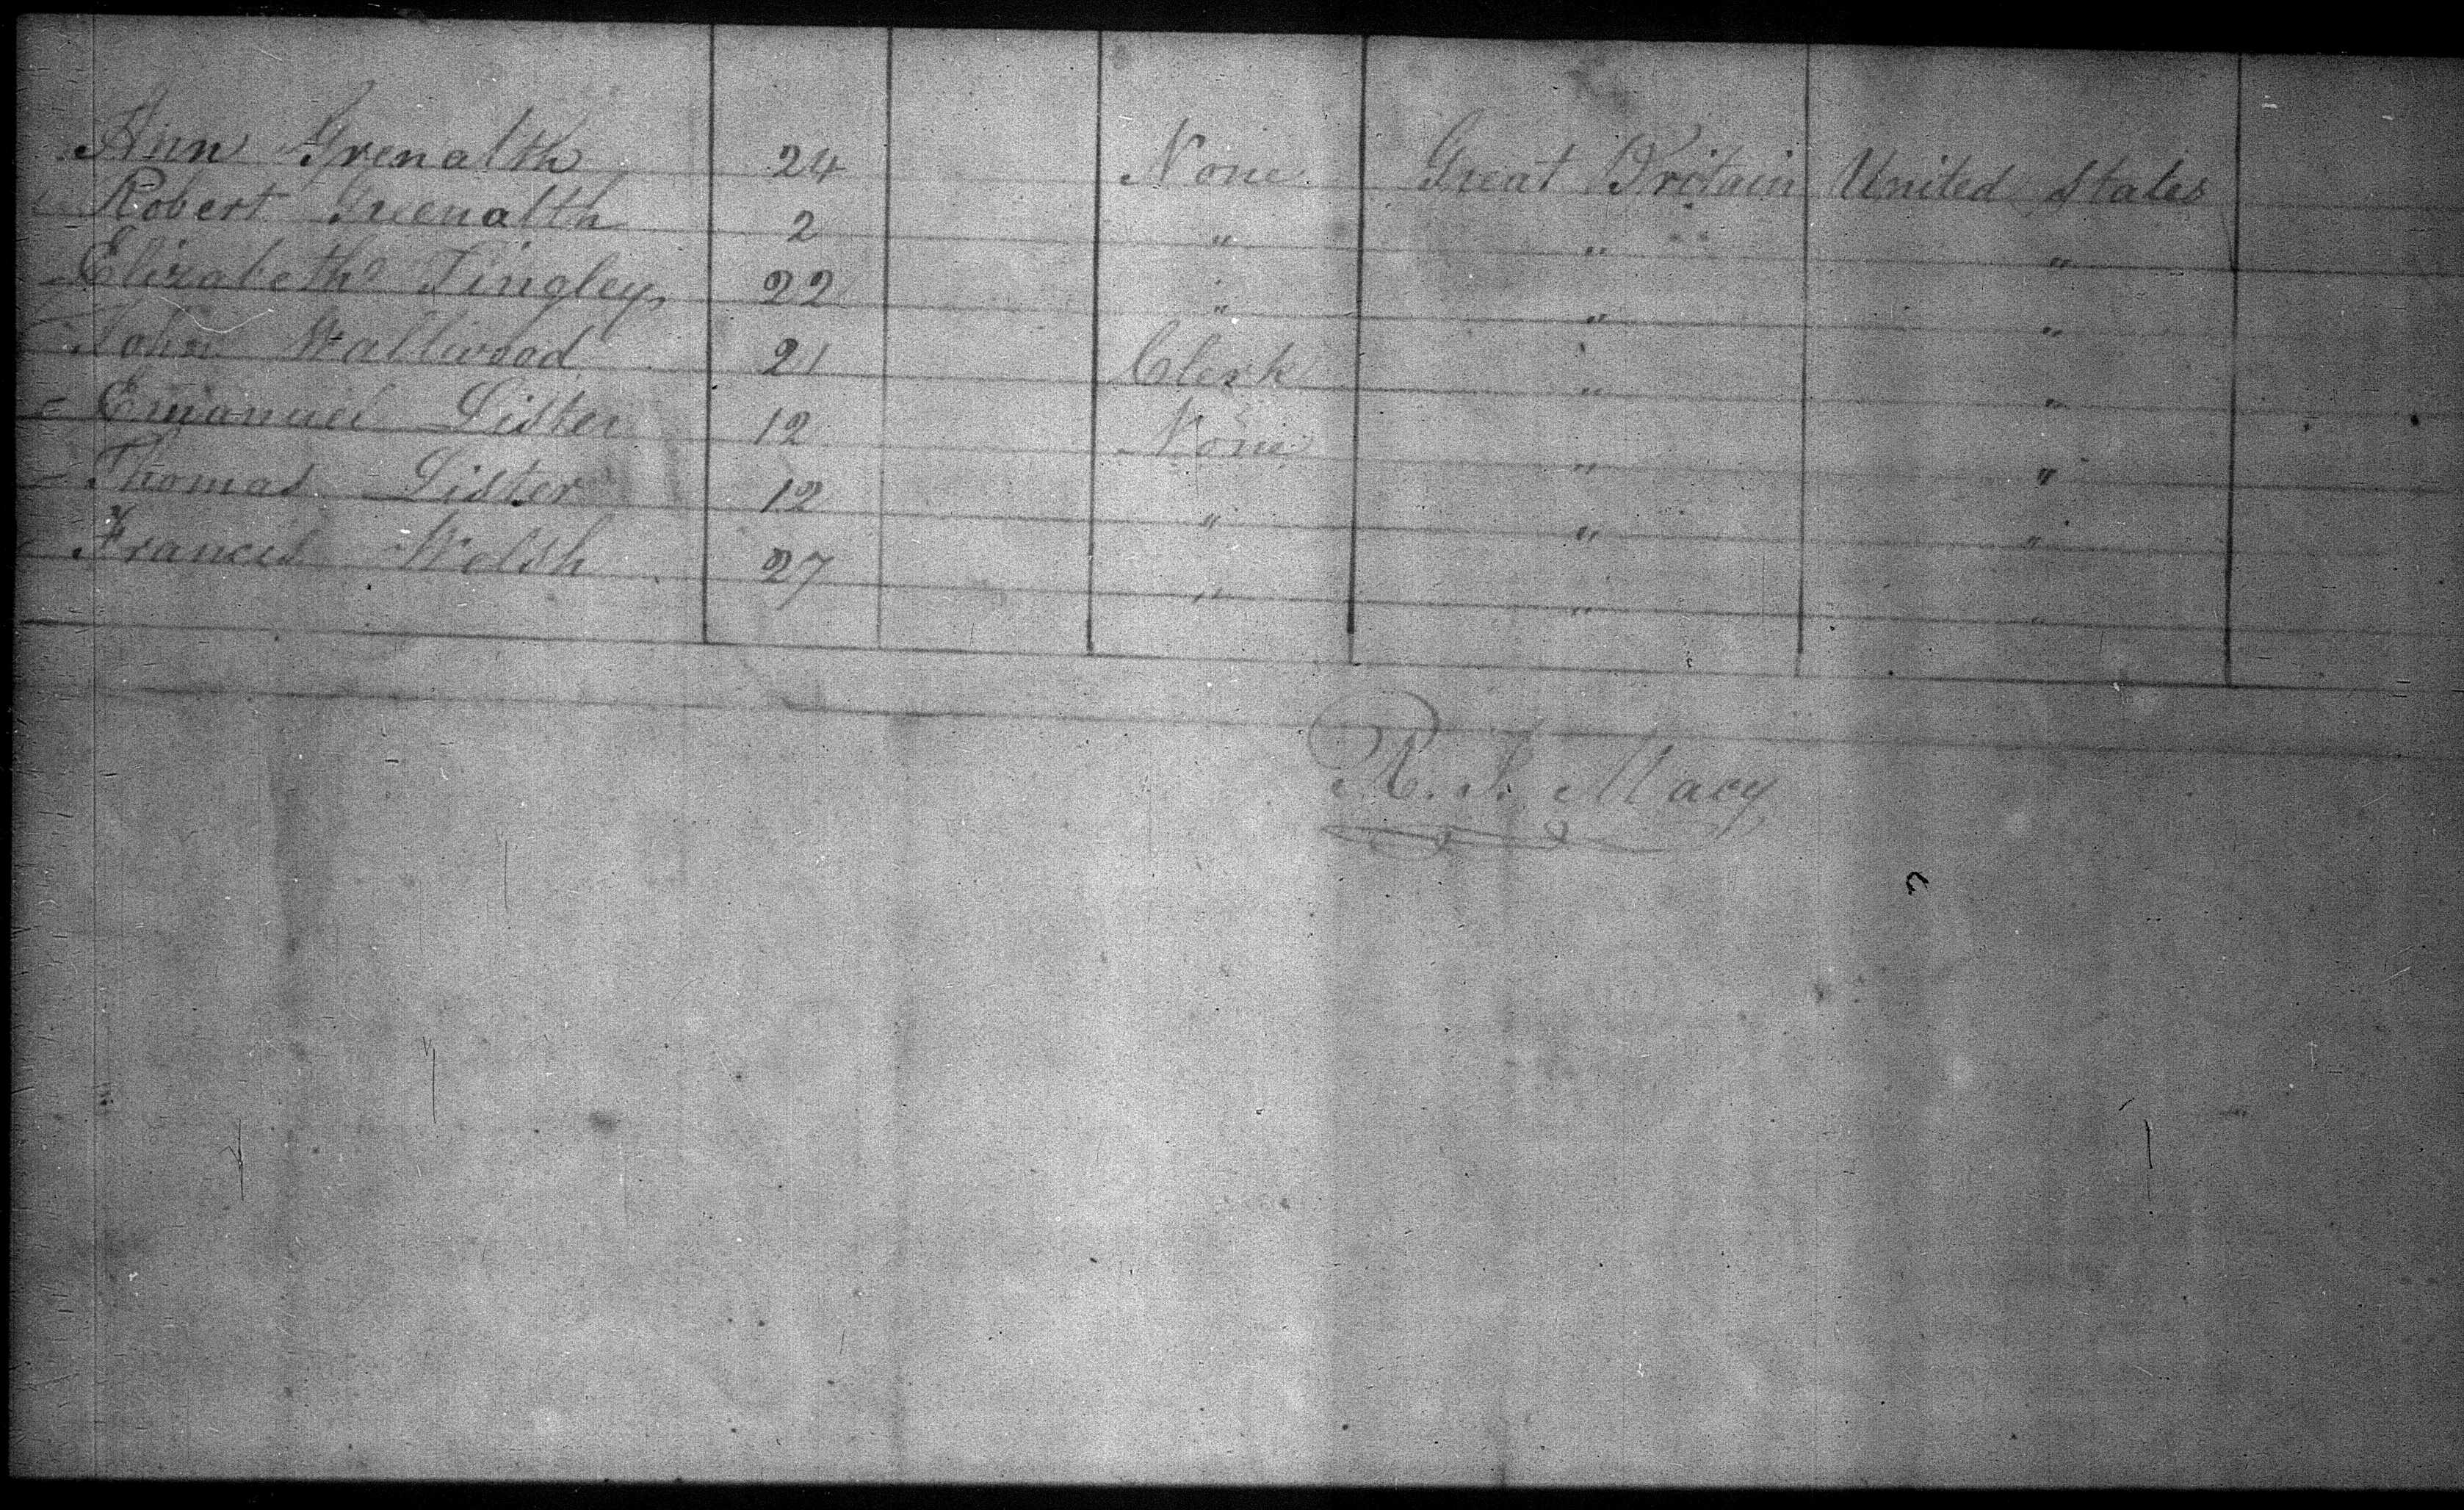 Ann Grenalth 24 None Great Britain United States
Robert Greenalth 2 " " "
Elizabeth Tingley 22 " " "
John Wallwood 21 Clerk " "
Emanuel Lister 12 None " "
Thomas Lister 12 " " "
Francis Welsh 27 " " "
R. J. Macy